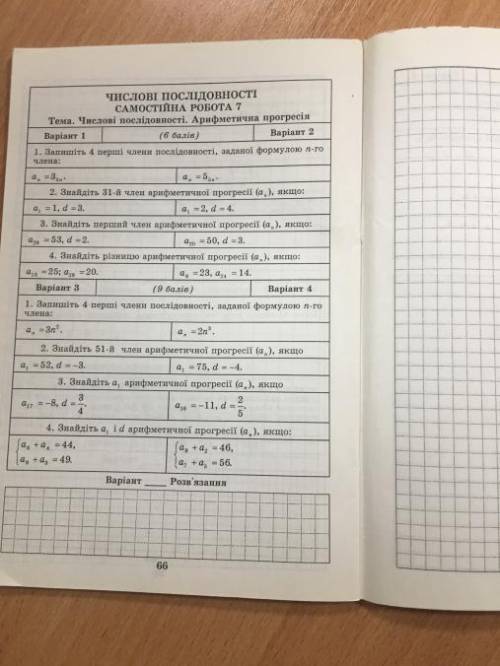 ЧИСЛОВІ ПОСЛІДОВНОСТІ
САМОСТІЙНА РОБОТА 7
Тема. Числові послідовності. Арифметична прогресія
Варіант 1 (6 балів) Варіант 2
1. Запишіть 4 перші члени послідовності, заданої формулою n-го
члена:
aₙ =3₂ₙ. aₙ =5₅ₙ.
2. Знайдіть 31-й член арифметичної прогресії (aₙ), якщо:
a₁ =1, d =3. a₁ =2, d =4.
3. Знайдіть перший член арифметичної прогресії (aₙ), якщо:
=53, d =2. =50, d =3.
4. Знайдіть різницю арифметичної прогресії (aₙ), якщо:
=25; =20. =23, =14.
Варіант 3 (9 балів) Варіант 4
1. Запишіть 4 перші члени послідовності, заданої формулою n-го
члена:
aₙ =3n². aₙ =2n³.
2. Знайдіть 51-й член арифметичної прогресії (aₙ), якщо
a₁ =52, d =–3. a₁ =75, d =–4.
3. Знайдіть a₁ арифметичної прогресії (aₙ), якщо
a₁₇ =–8, d = 3/4. =–11, d = 2/5.
4. Знайдіть a₁ і d арифметичної прогресії (aₙ), якщо:
=44, =46,
=49. =56.
Варіант ____ Розв'язання
66